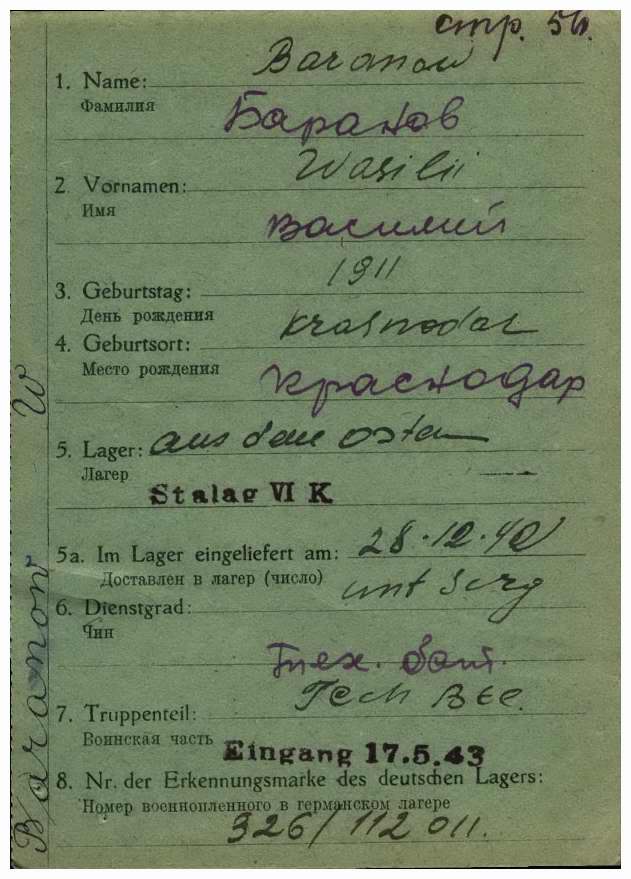 стр. 56.
Baranow
1. Name:
Фамилия
Баранов
Wasilii
2 Vornamen:
Имя
Василий
1911
3. Geburtstag:
День рождения
Krasnodar
4. Geburtsort:
Место рождения
Краснодар
5. Lager: aus dem Osten
Лагер
Stalag VI K
5a. Im Lager eingeliefert am: 28.12.42
Доставлен в лагер (число)
6. Dienstgrad:
Чин
Тех. бат.
7. Truppenteil:
Воинская часть
Eingang 17.5.43
8. Nr. der Erkennungsmarke des deutschen Lagers:
Номер военнопленного в германском лагере
326/112 011.
Baranow W